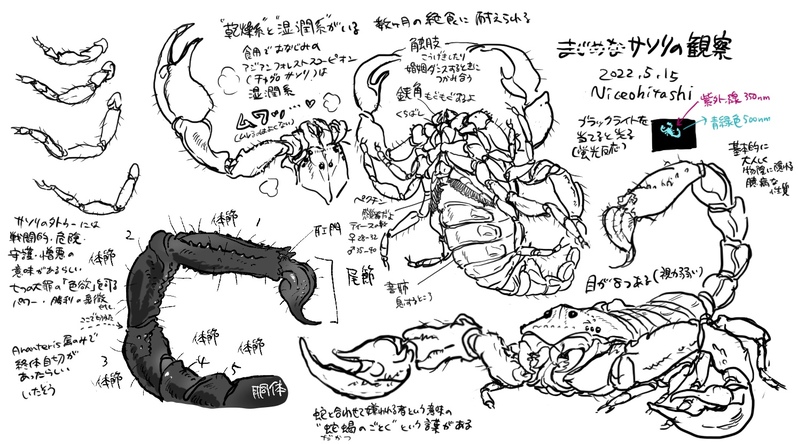 "乾燥系"と"湿潤系"がいる
数ヶ月の絶食に耐えられる
食用でおなじみの
アジアンフォレストスコーピオン
(チャグロサソリ)は
湿潤系
ムワッ…♥
触肢
こうげきしたり
婚姻ダンスするときに
つかみ合う
鋏角
もぐもぐするよ
くちばし
まじめなサソリの観察
2022.5.15
Niceohitashi
ブラックライトを
当てると光る
(蛍光反応)
紫外線350nm
青緑色500nm
基本的に
大人しく
物陰に隠れる
臆病な
性質
ペクチン
感覚器だよ
書肺
息するところ
目が8つある(視力弱い)
サソリのタトゥーには
戦闘的・危険・
守護・憎悪の
意味があるらしい
七つの大罪の「色欲」を司る
パワー・勝利の象徴
やで
ここでちぎれる
Ananteris属のみで
終体自切が
あったらしい
いたそう
体節
1
2
体節
3
体節
体節
4
体節
5
肛門
尾節
胴体
蛇と合わせて嫌われる者という意味の
"蛇蝎のごとく"という諺がある
だかつ